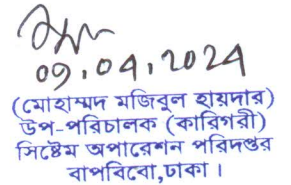 09.04.2024
(মোহাম্মদ মজিবুল হায়দার)
উপ-পরিচালক (কারিগরী)
সিষ্টেম অপারেশন পরিদপ্তর
বাপবিবো,ঢাকা।